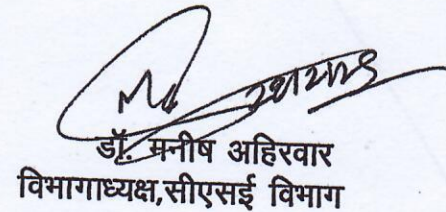 डॉ. मनीष अहिरवार
विभागाध्यक्ष,सीएसई विभाग